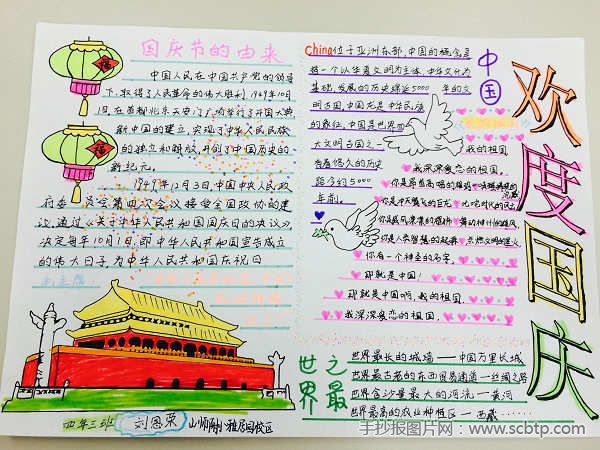 国庆节的由来
中国人民在中国共产党的领导
下,取得了人民革命的伟大胜利,1949年10月
1日,在首都北京天安门广场举行了开国大典
新中国的建立,实现了中华人民民族
的独立和解放,开创了中国历史的
新纪元。
1949年12月3日,中国中央人民政
府委员会第四次会议接受全国政协的建
议,通过《关于中华人民共和国国庆日的决议》,
决定每年10月1日,即中华人民共和国宣告成立
的伟大日子,为中华人民共和国庆祝日
福
福
China位于亚洲东部,中国的概念是
指一个以华夏文明为主体,中华文化为
基础,发展的历史
5000
年的文
明古国,中国龙是中华民
的象征,中国是世界四
大文明古国之一
有着悠久的历史
距今约5000
年前。
中国
我的祖国
我深深爱恋的祖国。
你是
你是
你是
你是人类智慧的起源
点燃文明的
你有一个神圣的名字,
那就是中国!
那就是中国啊,我的祖国,
我深深爱恋的祖国。
欢度国庆
世界之最
世界最长的城墙——中国万里长城
世界最古老的东西贸易通道——丝绸之路
世界含沙量最大的河流——黄河
世界最高的农业种植区——西藏……
四年三班
刘恩荣
山师附小雅居园校区
手抄报图片网:www.scbtp.com